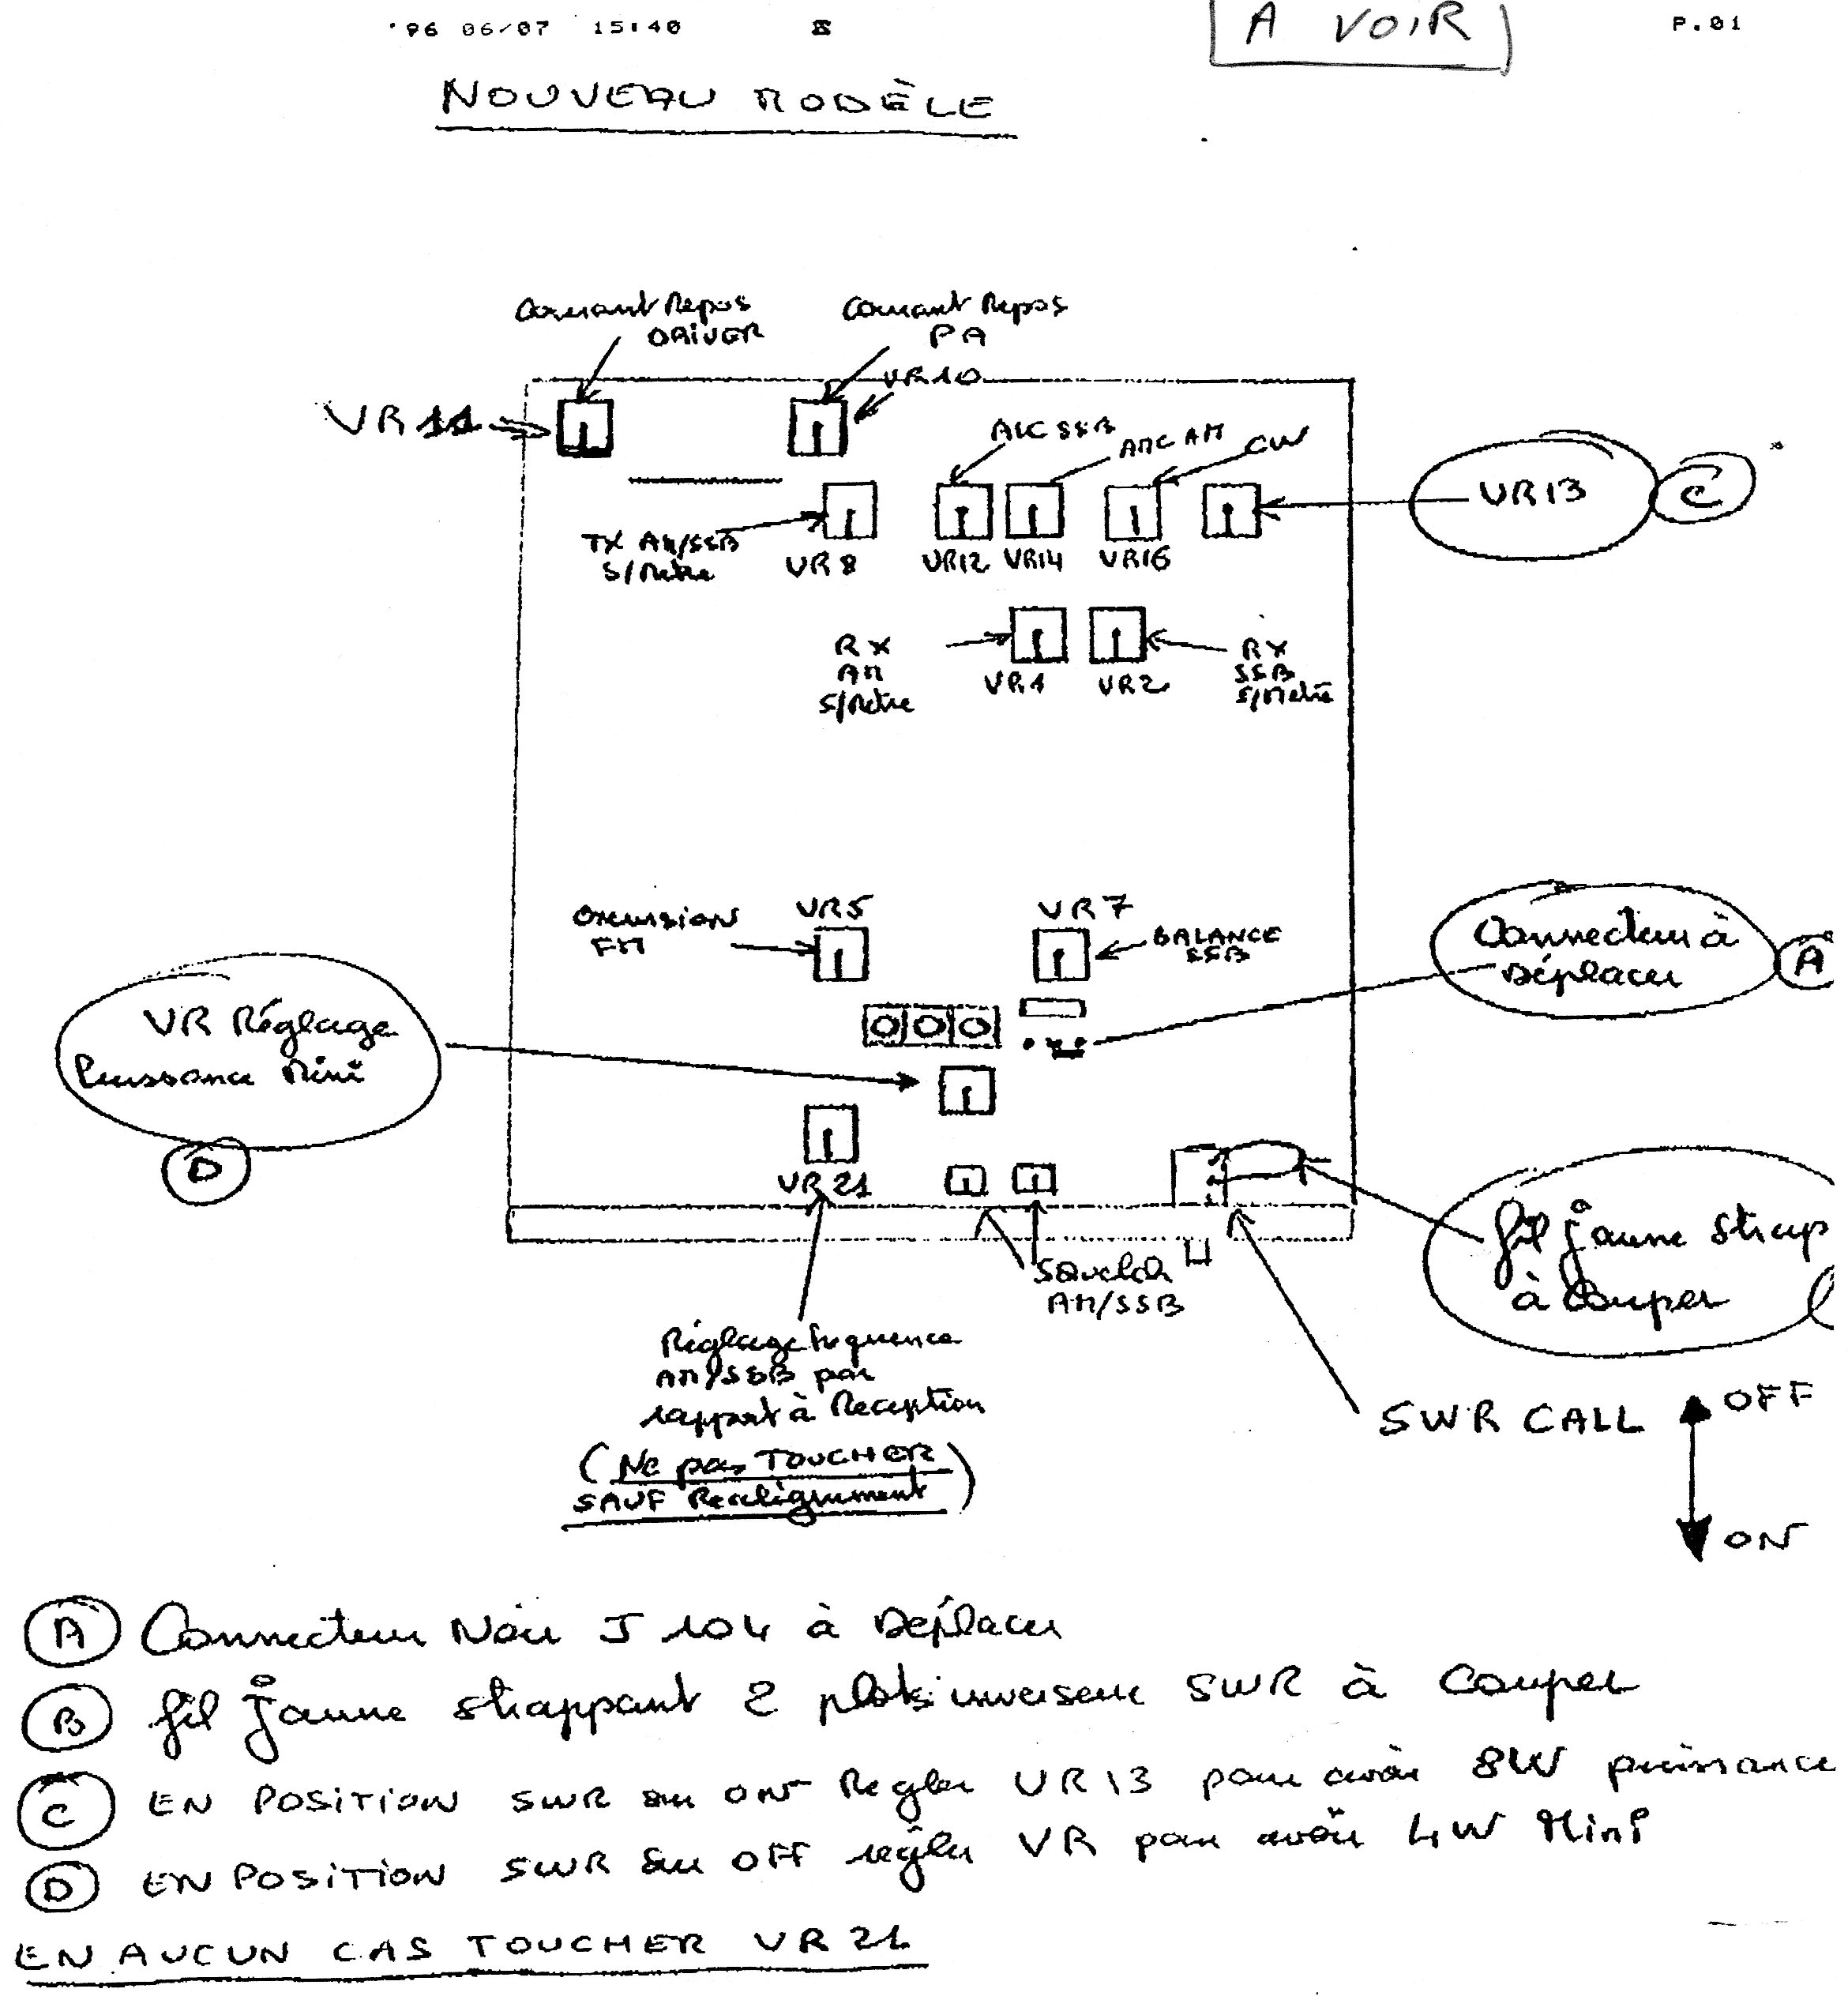 '96 06/07 15:40 P.01
A VOIR
NOUVEAU MODÈLE
Courant Repos
DRIVER
Courant Repos
PA
VR10
VR11
ALC SSB
AMC AM
CW
VR13
C
TX AM/SSB
S/Metre
VR8
VR12
VR14
VR16
RX
AM
S/Metre
VR1
VR2
RX
SSB
S/Metre
Excursion
FM
VR5
VR7
BALANCE
SSB
Connecteur à
Déplacer
A
VR Réglage
Puissance Mini
D
VR21
fil jaune strap
à couper
Squelch
AM/SSB
Réglage frequence
AM/SSB par
rapport à Reception
(Ne pas TOUCHER
SAUF Realignement)
SWR CALL
OFF
ON
A Connecteur Noir J104 à Déplacer
B fil jaune strappant 2 plots inverseur SWR à couper
C EN POSITION SWR sur ON Regler VR13 pour avoir 8W puissance
D EN POSITION SWR sur OFF regler VR pour avoir 4W Mini
EN AUCUN CAS TOUCHER VR21